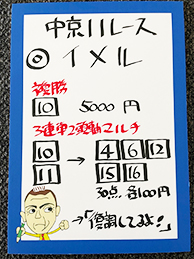 中京11レース
◎ イメル
複勝
10 5000円
3連単2頭軸マルチ
10 → 4 6 12
11 15 16
30点 各100円
→「復調してるよ!」